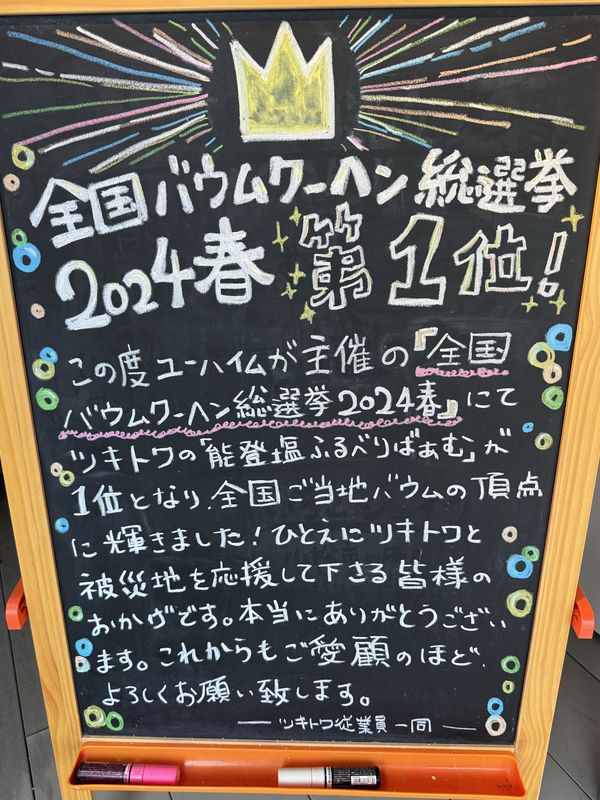 全国バウムクーヘン総選挙
2024春 第1位!
この度ユーハイムが主催の『全国
バウムクーヘン総選挙2024春』にて
ツキトワの「能登塩ふるべりばぁむ」が
1位となり、全国ご当地バウムの頂点
に輝きました!ひとえにツキトワと
被災地を応援して下さる皆様の
おかげです。本当にありがとうござい
ます。これからもご愛顧のほど、
よろしくお願い致します。
── ツキトワ従業員一同 ──